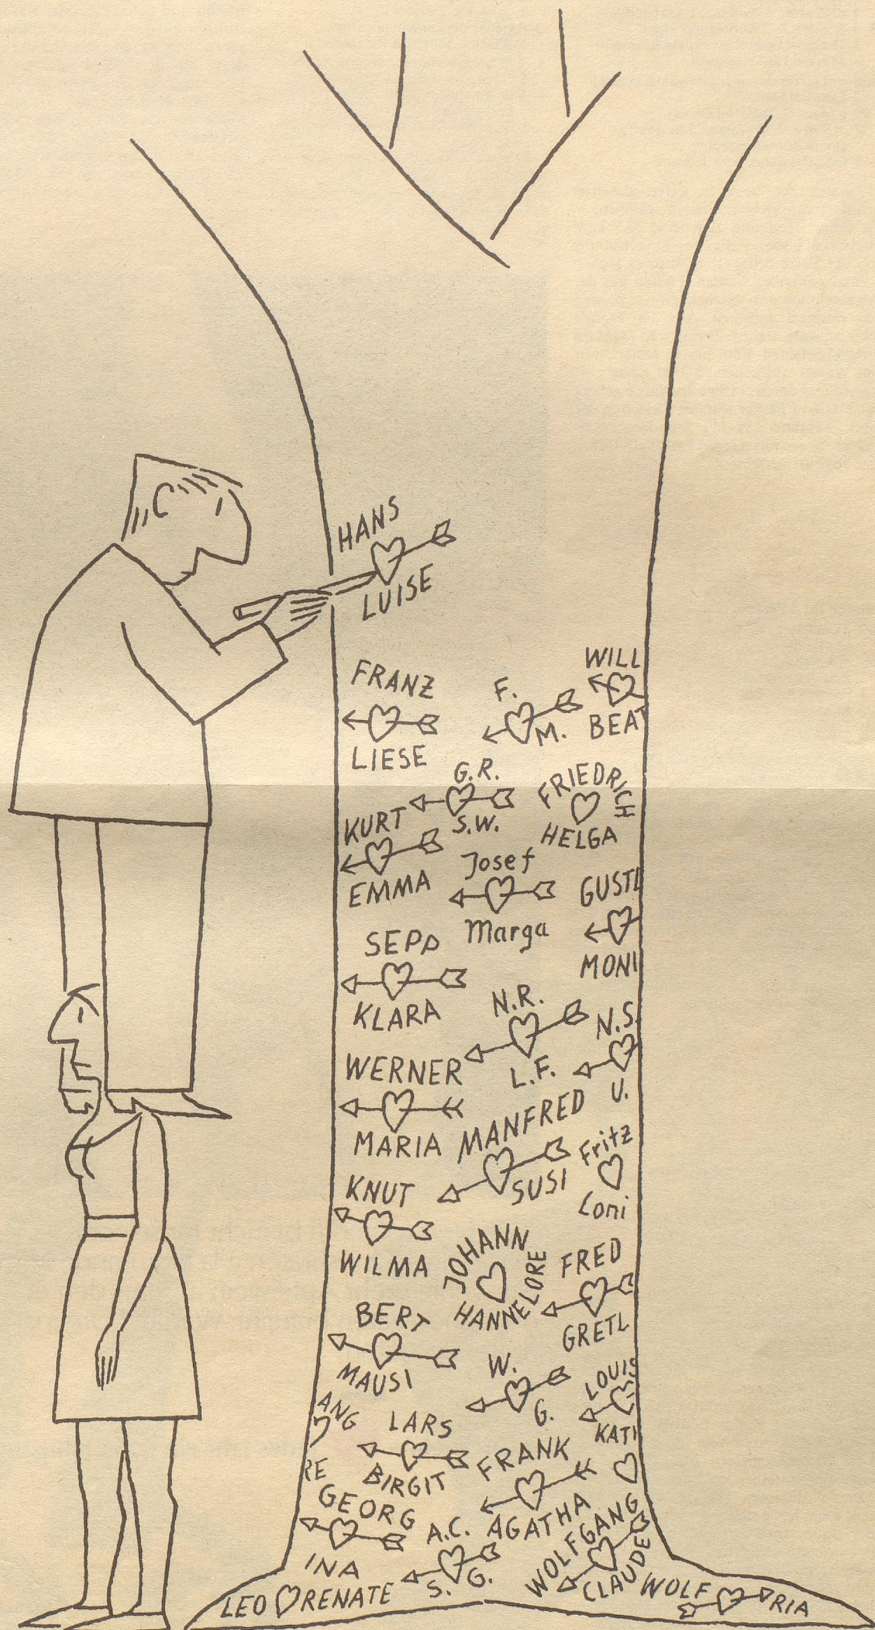 HANS
LUISE
FRANZ
LIESE
F.
M.
WILL
BEAT
G.R.
S.W.
FRIEDRICH
HELGA
KURT
EMMA
Josef
Marga
GUSTL
MONI
SEPP
KLARA
N.R.
L.F.
N.S.
U.
WERNER
MARIA
MANFRED
SUSI
Fritz
Loni
KNUT
WILMA
JOHANN
HANNELORE
FRED
GRETL
BERT
MAUSI
W.
G.
LOUIS
KATI
ANG
RE
LARS
BIRGIT
FRANK
AGATHA
GEORG
INA
A.C.
S. G.
WOLFGANG
CLAUDE
LEO RENATE
WOLF RIA